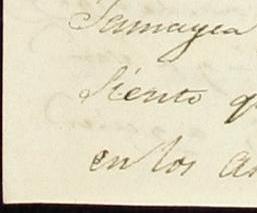 Jamayca
siento q
en los a